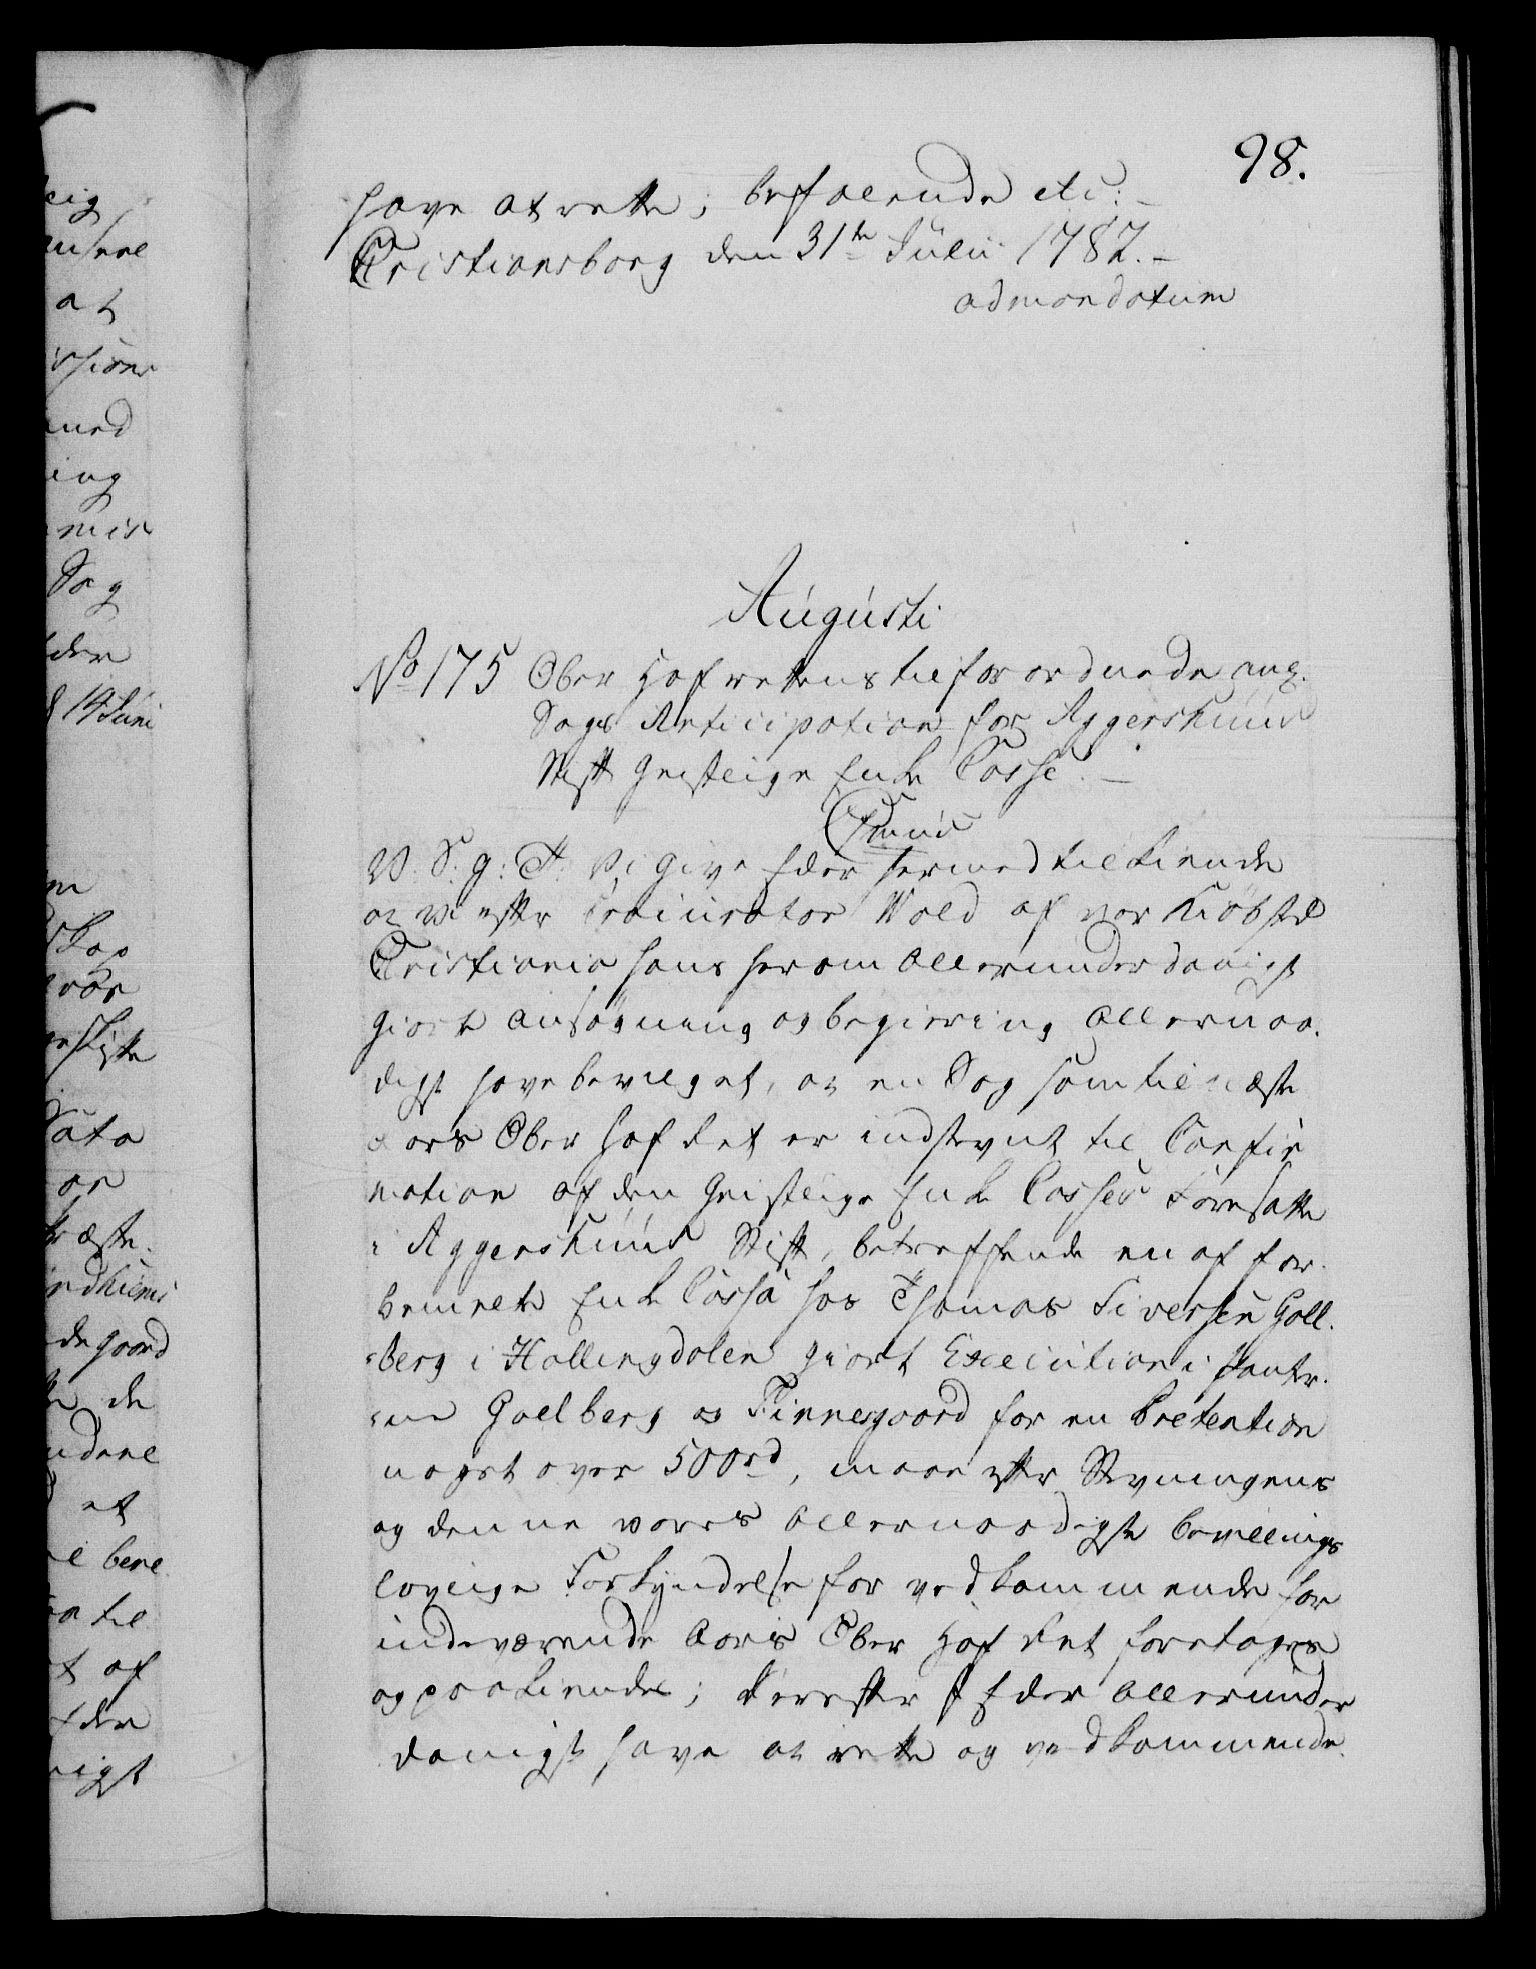 98.
have at rette; befalende etc:
Christiansborg den 31te Julii 1787.
ad mandatum
Augusti
No 175 Ober Hof rettens tilforordnede ang.
Sags Anticipation for Aggershuus
Stift Geistlige Enke Casse.
Cmus
V. S. g. T. Vi give Eder hermed tilkiende
at vi efter Procurator Wold af vor Kiöbsted
Christiania hans herom allerunderdanigst
giorte ansögning og begiering allernaa-
digst have bevilget, at en Sag som til næste
aars Ober Hof Ret er indstevnt til Confir
mation af den Geistlige Enke Casses Foresatte
i Aggershuus Stift, betreffende en af for-
bemelte Enke Cassa hos Thomas Siversen Goll-
berg i Hallingdalen giort Execution i Pante-
ne Gollberg og Finnesgaard for en Prætention
noget over 500 rd, maae efter Stevningens
og denne vores allernaadigste bevillings
lovlige Forkyndelse for vedkommende for
indeværende Aars Ober Hof Ret foretages
og paakiendes; derefter I Eder allerunder
danigst have at rette og vedkommende